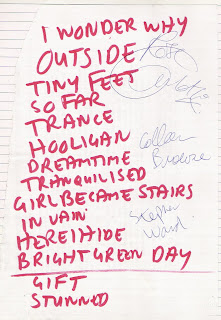 I WONDER WHY
OUTSIDE
TINY FEET
SO FAR
TRANCE
HOOLIGAN
DREAMTIME
TRANQUILISED
GIRL BECAME STAIRS
IN VAIN
HERE I HIDE
BRIGHT GREEN DAY
GIFT
STUNNED
Colleen
Browne
Stephen
Ward